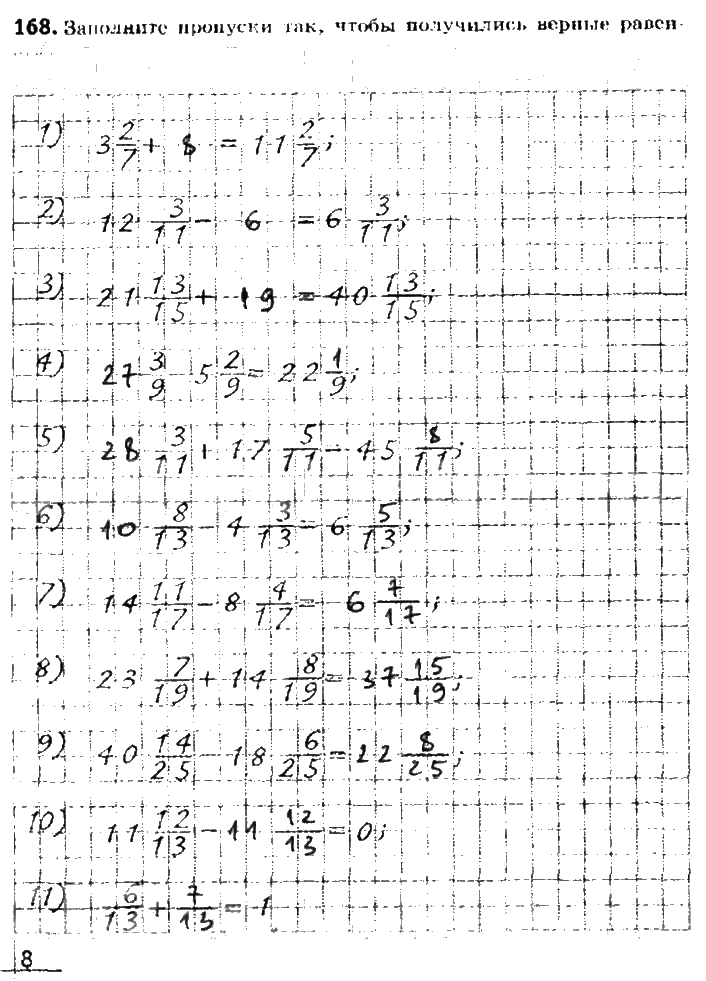 168. Заполните пропуски так, чтобы получились верные равен-
1) 3 2/7 + 8 = 11 2/7;
2) 12 3/11 - 6 = 6 3/11;
3) 21 13/15 + 19 = 40 13/15;
4) 27 3/9 5 2/9 = 22 1/9;
5) 28 3/11 + 17 5/11 = 45 8/11;
6) 10 8/13 - 4 3/13 = 6 5/13;
7) 14 11/17 - 8 4/17 = 6 7/17;
8) 23 7/19 + 14 8/19 = 37 15/19;
9) 40 14/25 - 18 6/25 = 22 8/25;
10) 11 12/13 - 11 12/13 = 0;
11) 6/13 + 7/13 = 1
8